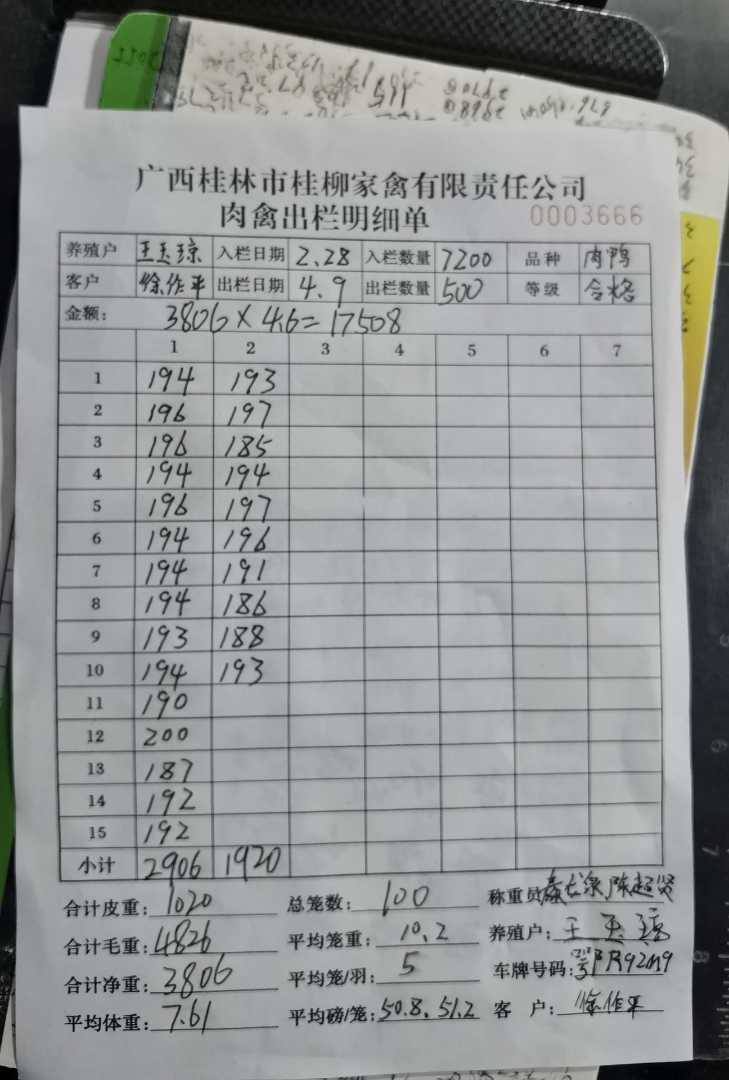 广西桂林市桂柳家禽有限责任公司
肉禽出栏明细单 0003666
养殖户 王玉琼 入栏日期 2.28 入栏数量 7200 品种 肉鸭
客户 徐作平 出栏日期 4.9 出栏数量 500 等级 合格
金额: 3806×4.6=17508
1 2 3 4 5 6 7
1 194 193
2 196 197
3 196 185
4 194 194
5 196 197
6 194 196
7 194 191
8 194 186
9 193 188
10 194 193
11 190
12 200
13 187
14 192
15 192
小计 2906 1920
合计皮重: 1020 总笼数: 100 称重员 陈超贤
合计毛重: 4826 平均笼重: 10.2 养殖户: 王玉琼
合计净重: 3806 平均笼/羽: 5 车牌号码:
平均体重: 7.61 平均磅/笼: 50.8、51.2 客户: 徐作平